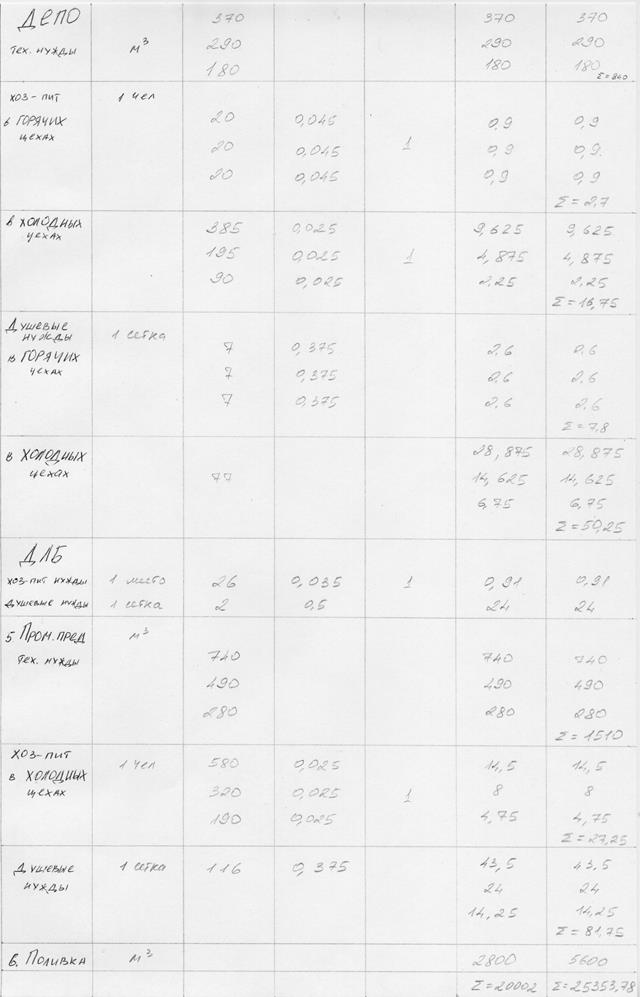 ДЕПО 370 370 370
тех. нужды м³ 290 290 290
180 180 180
Σ=840
хоз-пит 1 чел
в ГОРЯЧИХ 20 0,045 0,9 0,9
цехах
20 0,045 1 0,9 0,9
20 0,045 0,9 0,9
Σ=2,7
в ХОЛОДНЫХ 385 0,025 9,625 9,625
цехах
195 0,025 1 4,875 4,875
90 0,025 2,25 2,25
Σ=16,75
Душевые
нужды 1 сетка
в ГОРЯЧИХ 7 0,375 2,6 2,6
цехах 7 0,375 2,6 2,6
7 0,375 2,6 2,6
Σ=7,8
в ХОЛОДНЫХ 28,875 28,875
цехах 77 14,625 14,625
6,75 6,75
Σ=50,25
ДЛБ
хоз-пит нужды 1 место 26 0,035 1 0,91 0,91
душевые нужды 1 сетка 2 0,5 24 24
5 Пром.пред м³
тех. нужды 740 740 740
490 490 490
280 280 280
Σ=1510
хоз-пит
в ХОЛОДНЫХ 1 чел 580 0,025 14,5 14,5
цехах 320 0,025 1 8 8
190 0,025 4,75 4,75
Σ=27,25
Душевые 1 сетка 116 0,375 43,5 43,5
нужды 24 24
14,25 14,25
Σ=81,75
6. Поливка м³ 2800 5600
Σ=20002 Σ=25353,78